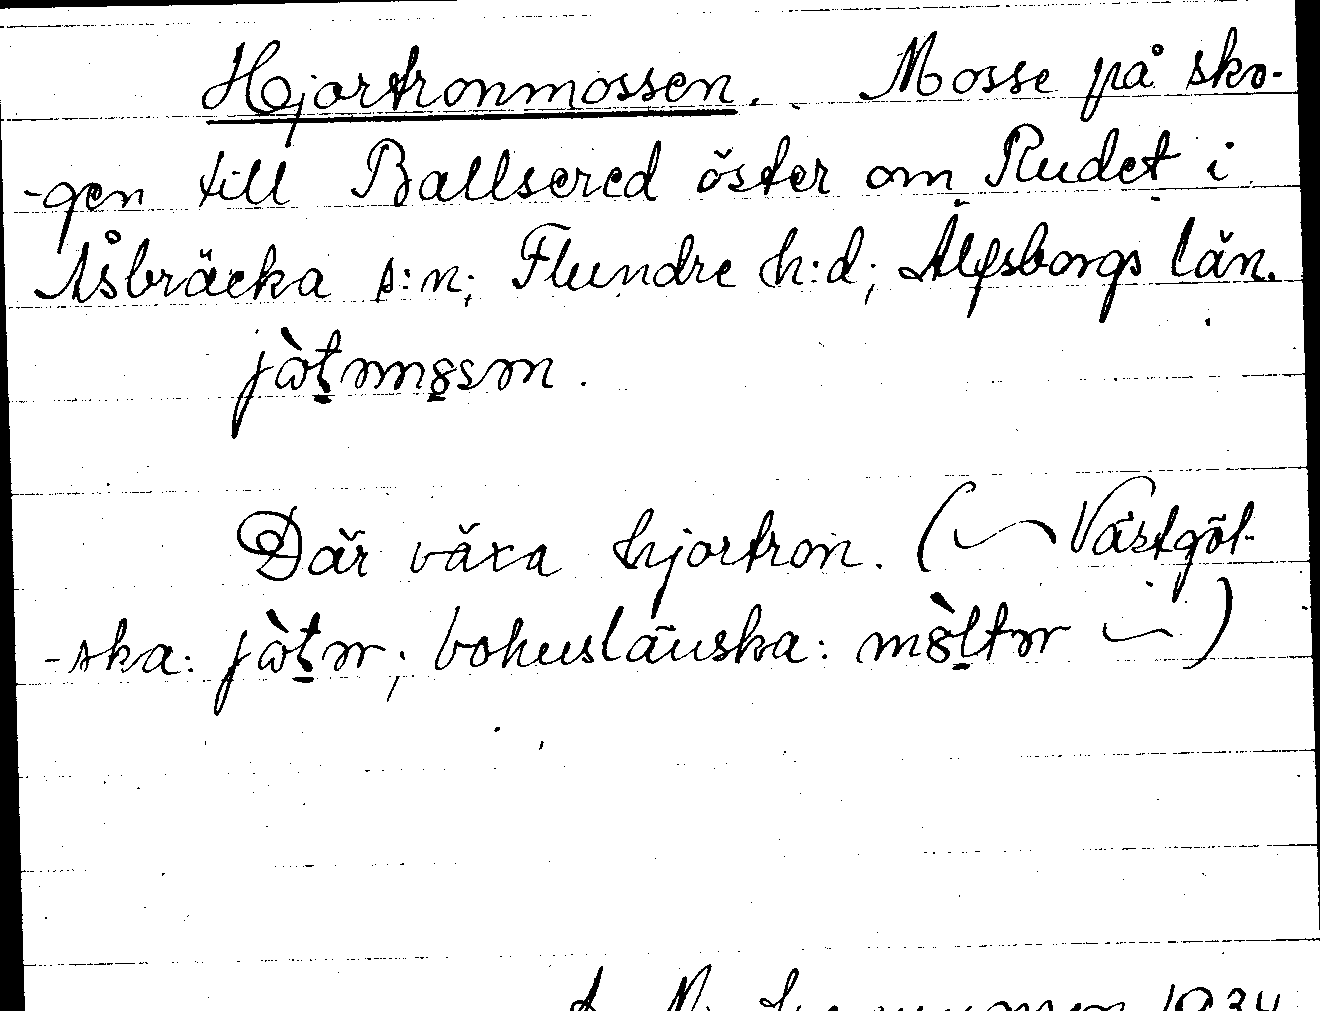 Hjortronmossen. Mosse på sko-
-gen till Ballsered öster om Rudet i
Åsbräcka s:n; Flundre h:d; Älfsborgs län.
Där växa hjortron. ( Västgöt-
-ska: ; bohuslänska: )
1934